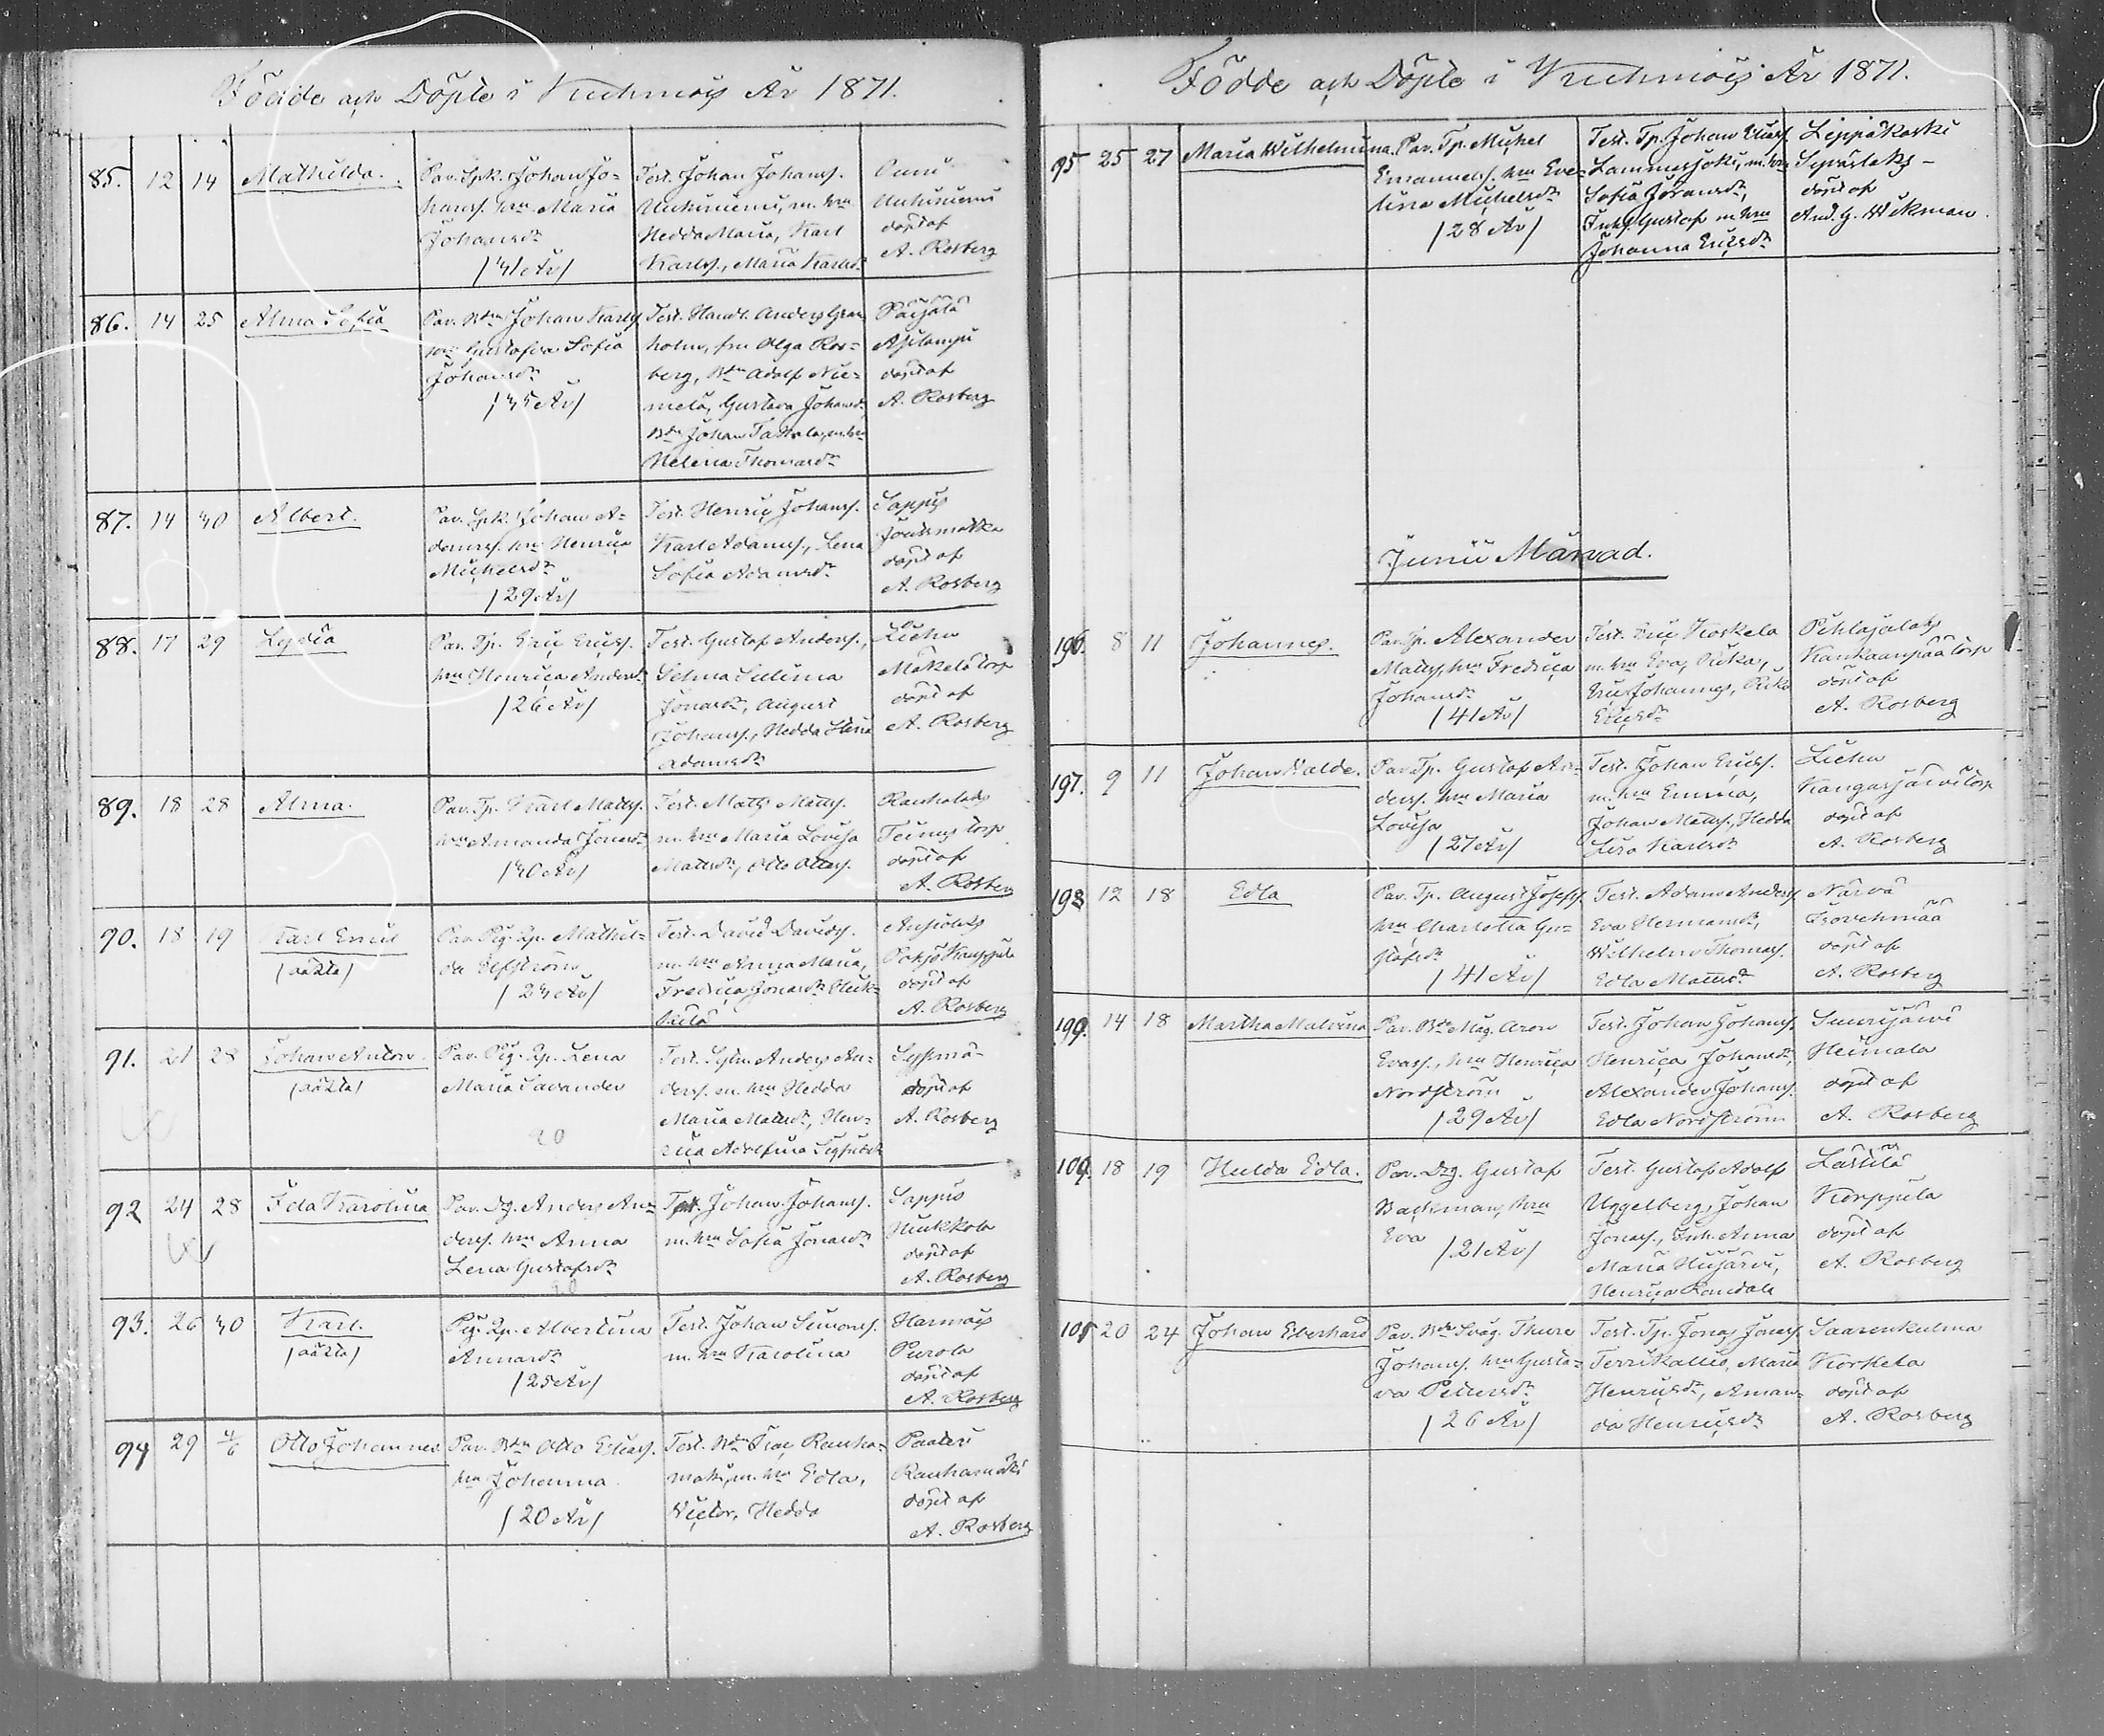 Födde och Döpte i Kuhmois År 1871.
85. 12 14 Mathilda.
Par. Spk. Johan Jo-
hanss. hru Maria
Johansdr
/41 År/
Test. Johan Johanss.
m. hru
Hedda Maria, Karl
Karlss., Maria Karlsdr
döpt af
A. Rosberg
86. 14 25 Alma Sofia
Par. Bdn Johan Karlss
hru Gustafva Sofia
Johansdr
/35 År/
Test. Handl. Anders Gran
holm, fru Olga Ros-
berg, Bdn Adolf Nie-
melä, Gustava Johansdr
Bdn Johan Tattola, m. hru
Helena Thomasdr
Päijälä
döpt af
A. Rosberg
87. 14 30 Albert.
Par. Spk. Johan A-
damss. hru Henrica
Michelsdr
/29 År/
Test. Henric Johanss.
Karl Adamss., Lena
Sofia Adamsdr
Sappis
döpt af
A. Rosberg
88. 17 29 Lydia
Par. Tp. Eric Ericss.
hru Henrica Andersdr
/26 År/
Test. Gustaf Anderss.,
Selma Selima
Jonasdr, August
Johanss., Hedda Stina
Adamsdr
Liehu
Mäkelä torp
döpt af
A. Rosberg
89. 18 28 Alma.
Par. Tp. Karl Matss.
hru Amanda Jonasdr
/30 År/
Test. Matts Matss.
m. hru Maria Lovisa
Mattsdr, Otto Ottoss.
torp
döpt af
A. Rosberg
90. 18 19 Karl Emil
/oäkta/
Par. Pig. Qp. Mathil-
da Elfström
/23 År/
Test. David Davidss.
m. hru Anna Maria,
Fredrica Jonasdr Huk-
kila
döpt af
A. Rosberg
91. 21 28 Johan Anton.
/oäkta/
Par. Pig. Qp. Lena
Maria Savander
20
Test. Anders An-
derss. m. hru Hedda
Maria Matsdr, Hen-
rica Adolfina
Syssmä-
döpt af
A. Rosberg
92 24 28 Ida Karolina
Par. Dg. Anders An-
derss. hru Anna
Lena Gustafsdr
Test. Johan Johanss.
m. hru Sofia Jonasdr
Sappis
Hukkola
döpt af
A. Rosberg
93. 26 30 Karl.
/oäkta/
Pig. Qp. Albertina
Annasdr
/25 År/
Test. Johan Simonss.
m. hru Karolina
Harmois
Purola
döpt af
A. Rosberg
94 29 4/6 Otto Johannes
Par. Bdn Otto Eliass.
hru Johanna
/20 År/
Test. Bdn Isac Rauha-
mäki, m. hru Edla,
Victor, Hedda
Paateri
Rauhamäki
döpt af
A. Rosberg
Födde och Döpte i Kuhmois År 1871.
95 25 27 Maria Wilhelmina
Par. Tp. Michel
Emanuelss. hru Eve-
lina Michelsdr
/28 År/
Test. Tp. Johan Eliass
Lammasjoki, m. hru
Sofia Jöransdr,
Inh. Gustaf m. hru
Johanna Ericsdr
Leppäkoski
döpt af
And. G. Wikman.
Junii Månad.
196. 8 11 Johannes.
Par. Tp. Alexander
Matss, hru Fredrica
Johansdr
/41 År/
Test. Eric Koskela
m. hru Eva, Rika,
Eric Johannes, Rika
Ericsdr
Pihlajalaks
Kankaanpää torp
döpt af
A. Rosberg
197. 9 11 Johan Valde.
Par. Tp. Gustaf An-
derss. hru Maria
Lovisa
/27 År/
Test. Johan Ericss.
m. hru Emma,
Johan Matss., Hedda
Lisa Karlsdr
Liehu
Kangasjärvi torp
döpt af
A. Rosberg
198 12 18 Edla
Par. Tp. August Josefss.
hru Charlotta Gu-
stafsdr
/41 År/
Test. Adam Anderss.
Eva Hermansdr,
Wilhelm Thomass.
Edla Matsdr
Närvä
Isovehmaa
döpt af
A. Rosberg
199. 14 18 Martha Malvina
Par. Bde Måg. Aron
Evass., hru Henrica
Nordström
/29 År/
Test. Johan Johanss.
Henrica Johansdr,
Alexander Johanss.
Edla Nordström
Heimala
döpt af
A. Rosberg
100. 18 19 Hulda Edla.
Par. Drg. Gustaf
Backman, hru
Eva
/21 År/
Test. Gustaf Adolf
Uggelberg, Johan
Jonass., Inh. Anna
Maria Hiijärvi,
Henrica
Lästilä
Korppila
döpt af
A. Rosberg
101 20 24 Johan Eberhard
Par. Bde Svåg. Thure
Johanss. hru Gusta-
va Pettersdr
/26 År/
Test. Tp. Jonas Jonass
Terrikallio, Maria
Henricsdr, Aman-
da Henricsdr
Saarenkulma
Korkela
döpt af
A. Rosberg